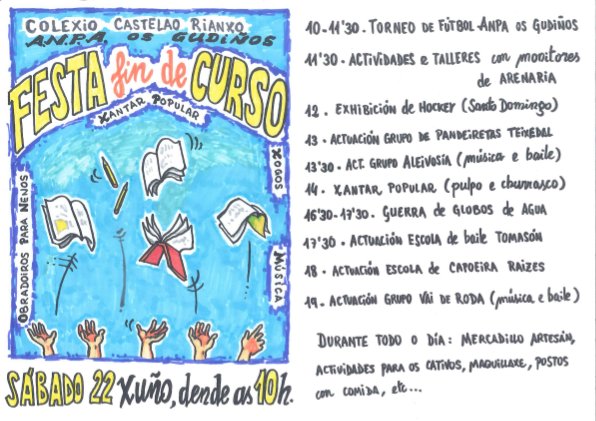 COLEXIO CASTELAO RIANXO
A.N.P.A. OS GUDIÑOS
FESTA fin de CURSO
XANTAR POPULAR
OBRADOIROS PARA NENOS
XOGOS
MÚSICA
SÁBADO 22 XUÑO, dende as 10h.
10-11'30. TORNEO DE FÚTBOL ANPA OS GUDIÑOS
11'30. ACTIVIDADES e TALLERES con monitores
de ARENARIA
12. EXHIBICIÓN DE HOCKEY (Santo Domingo)
13. ACTUACIÓN GRUPO DE PANDEIRETAS TEIXEDAL
13'30. ACT. GRUPO ALEIVOSÍA (música e baile)
14. XANTAR POPULAR (pulpo e churrasco)
16'30-17'30. GUERRA DE GLOBOS DE AGUA
17'30. ACTUACIÓN ESCOLA de baile TOMASÓN
18. ACTUACIÓN ESCOLA DE CAPOEIRA RAIZES
19. ACTUACIÓN GRUPO VAI DE RODA (música e baile)
DURANTE TODO O DÍA: MERCADILLO ARTESÁN,
ACTIVIDADES PARA OS CATIVOS, MAQUILLAXE, POSTOS
con COMIDA, etc...